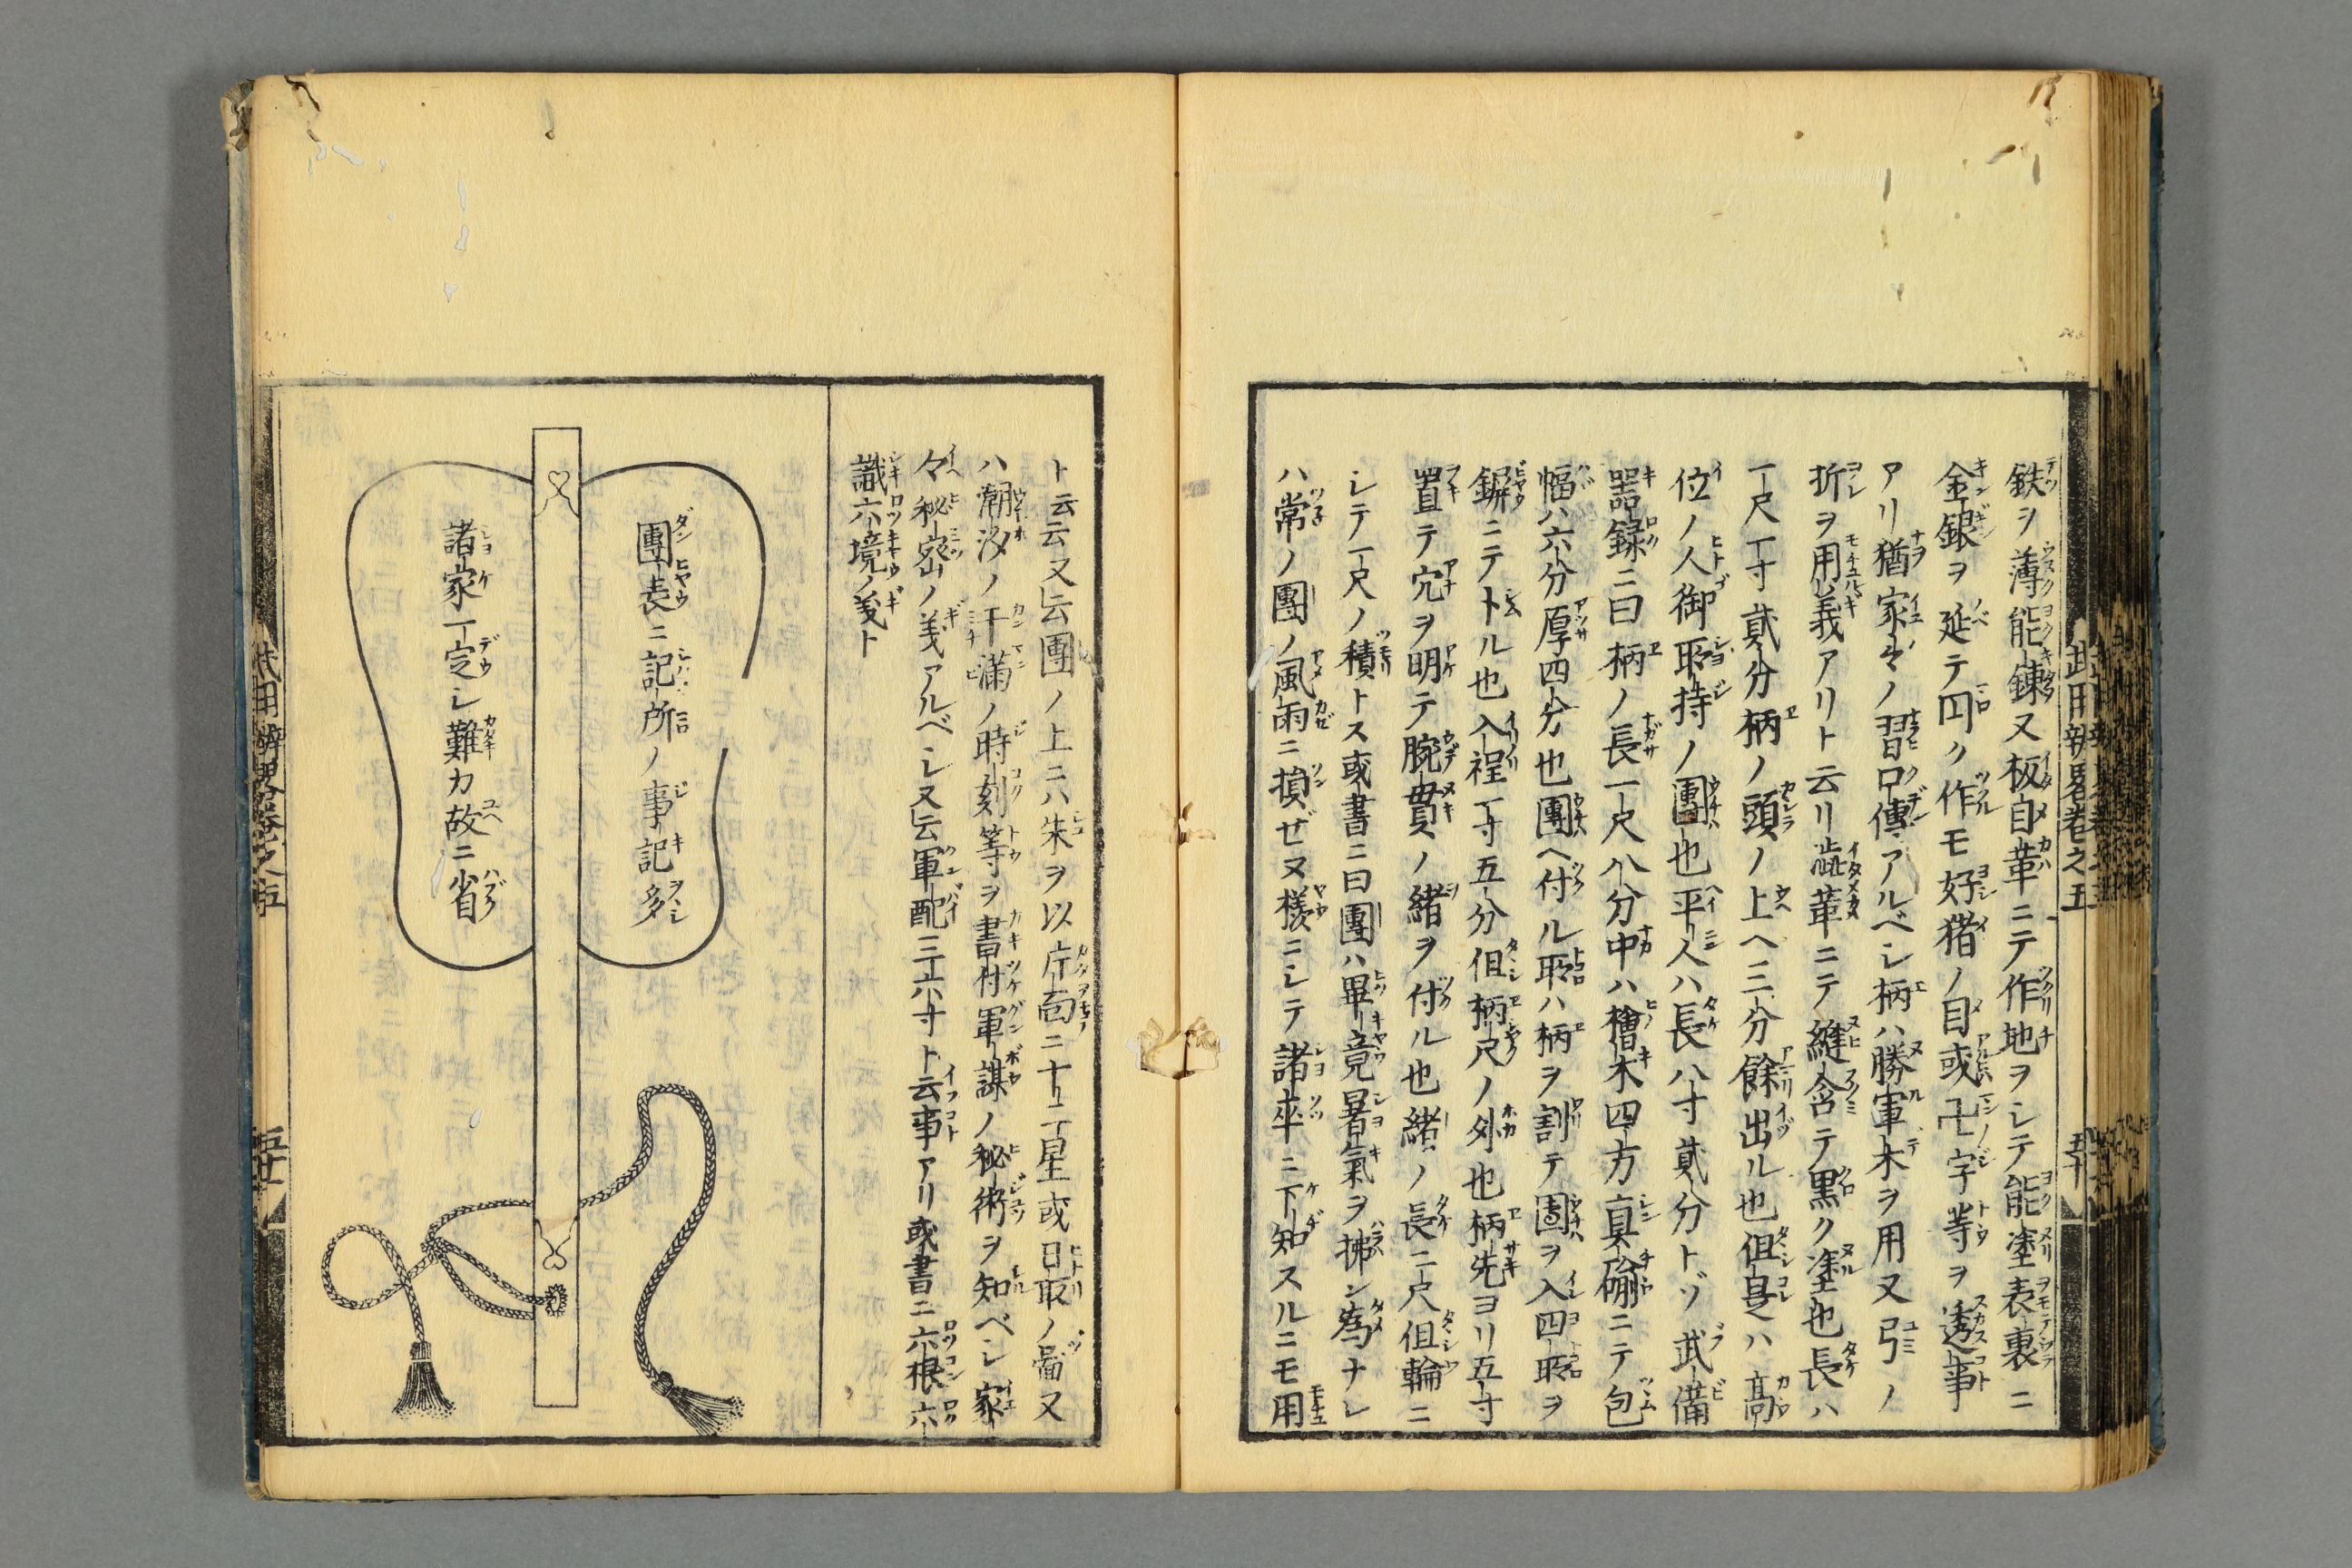 鉄ヲ薄能錬又板目革ニテ作地ヲシテ能塗表裏ニ
金銀ヲ延テ円ク作モ好猪ノ目或卍字等ヲ透事
アリ猶家々ノ習口傳アルベシ柄ハ勝軍木ヲ用又弓ノ
折ヲ用義アリト云リ澁革ニテ縫含テ黒ク塗也長ハ
一尺一寸貳分柄ノ頭ノ上ヘ三分餘出ル也但是ハ高
位ノ人御所持ノ團也平人ハ長八寸貳分トゾ武備
器録ニ曰柄ノ長一尺八分中ハ檜木四方真鍮ニテ包
幅ハ六分厚四分也團ヘ付ル所ハ柄ヲ割テ團ヲ入四所ヲ
鋲ニテトル也入程一寸五分但柄尺ノ外也柄先ヨリ五寸
置テ穴ヲ明テ腕貫ノ緒ヲ付ル也緒ノ長二尺但輪ニ
シテ一尺ノ積トス或書ニ曰團ハ畢竟暑氣ヲ拂ン為ナレ
ハ常ノ團ノ風雨ニ損ゼヌ様ニシテ諸卒ニ下知スルニモ用
武用辨畧巻之五
五十
ト云云又云團ノ上ニハ朱ヲ以片面ニ十二星或日取ノ啚又
ハ潮汐ノ干満ノ時刻等ヲ書付軍謀ノ秘術ヲ知ベシ家
々秘密ノ義アルベシ又云軍配三六寸ト云事アリ或書ニ六根六
識六境ノ義ト
團表ニ記所ノ事記多
諸家一定シ難カ故ニ省